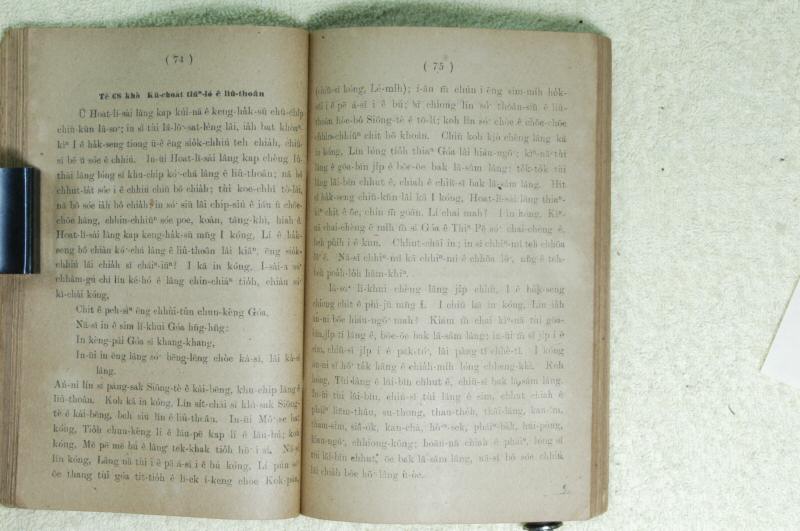 ( 74 )
Tē 68 khò Kū-choat tiûⁿ-ló ê liû-thoân
Ū Hoat-lī-sài lâng kap kúi-nā ê keng-ha̍k-sū chū-chi̍p
chiū-kūn Iâ-so͘; in sī tùi Iâ-lō͘-sat-léng lâi, ia̍h bat khòaⁿ-
kìⁿ I ê ha̍k-seng tiong ū-ê ēng sio̍k-chhiú teh chia̍h, chiū-
sī bē ū sóe ê chhiú. In-ūi Hoat-lī-sài lâng kap chèng Iû-
thài lâng lóng sī khu-chip kó͘-chá lâng ê liû-thoân; nā bô
chhut-la̍t sóe i ê chhiú chiū bô chia̍h; tùi koe-chhī tò-lâi,
nā bô sóe ia̍h bô chia̍h; in só͘ siú lâi chip-siú ê iáu ū chōe-
chōe hāng, chhin-chhiūⁿ sóe poe, koàn, tâng-khì, hiah ê.
Hoat-lī-sài lâng kap keng-ha̍k-sū mn̄g I kóng, Lí ê ha̍k-
seng bô chiàu kó͘-chá lâng ê liû-thoân lâi kiâⁿ, ēng sio̍k-
chhiú lâi chia̍h sī cháiⁿ-iūⁿ? I kā in kóng, Í-sài-a só͘
chhàm-gú chí lín ké-hó ê lâng chin-chiàⁿ tio̍h, chiàu só͘
kì-chài kóng,
Chit ê peh-sìⁿ ēng chhùi-tûn chun-kèng Góa,
Nā-sī in ê sim lī-khui Góa hn̄g-hn̄g;
In kèng-pài Góa sī khang-khang,
In-ūi in ēng lâng só͘ bēng-lēng chòe kà-sī, lâi kà-sī
lâng.
Án-ni lín sī pàng-sak Siōng-tè ê kài-bēng, khu-chip lâng ê
liû-thoân. Koh kā in kóng, Lín sit-chāi sī khì-sak Siōng-
tè ê kài-bēng, beh siu lín ê liû-thoân. In-ūi Mô͘-se bat
kóng, Tio̍h chun-kèng lí ê lāu-pē kap lí ê lāu-bú; koh
kóng, Mē pē mē bú ê lâng tek-khak tio̍h hō͘ i sí. Nā-sī
lín kóng, Lâng nā tùi i ê pē á-sī i ê bú kóng, Lí pún só͘
ōe thang tùi góa tit-tio̍h ê lī-ek í-keng chòe Kok-pán,
( 75 )
(chiū-sī kóng, Lé-mi̍h); í-āu m̄ chún i ēng sim-mi̍h ho̍k-
sāi i ê pē á-sī i ê bú; bī chiong lín só͘ thoân-siū ê liû-
thoân hòe-bô Siōng-tè ê tō-lí; koh lín só͘ chòe ê chōe-chōe
chhin-chhiūⁿ chit hō khoán. Chiū koh kiò chèng lâng kā
in kóng, Lín lóng tio̍h thiaⁿ Góa lâi hiáu-ngō͘; kìⁿ-nā tùi
lâng ê gōa-bīn ji̍p ê bōe-ōe bak lâ-sâm lâng; to̍k-to̍k tùi
lâng lāi-bīn chhut ê, chiah ê chiū-sī bak lâ-sâm lâng. Hit
sî ha̍k-seng chiū-kūn lâi kā I kóng, Hoat-lī-sài lâng thiaⁿ-
kìⁿ chit ê ōe, chin m̄ goān. Lí chai mah? I ìn kóng, Kìⁿ-
nā chai-chèng ê m̄-sī Góa ê Thiⁿ Pē só͘ chai-chèng ê,
beh pu̍ih i ê kun. Chhut-chāi in; in sī chhiⁿ-mî teh chhōa
lō͘ ê. Nā-sī chhiⁿ-mî kā chhiⁿ-mî ê chhōa lō͘, nn̄g ê teh-
beh poa̍h-lo̍h hām-khiⁿ.
Iâ-so͘ lī-khui chèng lâng ji̍p chhù, I ê ha̍k-seng
chiong chit ê phì-jū mn̄g I. I chiū kā in kóng, Lín ia̍h
iā-ni bô hiáu-ngō͘ mah? Kiám m̄ chai kìⁿ-nā tùi gōa-
bīn ji̍p tī lâng ê, bōe-ōe bak lâ-sâm lâng; in-ūi m̄ sī ji̍p i ê
sim, chiū-sī ji̍p i ê pak-tó͘, lâi pàng tī chhê-tī. I kóng
án-ni sī hō͘ ta̍k hāng ê chia̍h-mi̍h lóng chheng-khì. Koh
kóng, Tùi lâng ê lāi-bīn chhut ê, chiū-sī bak lâ-sâm lâng.
In-ūi tùi lāi-bīn, chiū-sī tùi lâng ê sim, chhut chiah ê
pháiⁿ liām-thâu, su-thong, thau-the̍h, thâi-lâng, kan-îm,
tham-sim, siâ-ok, kan-chà, hòⁿ-sek, pháiⁿ-ba̍k, húi-pòng,
kiau-ngō͘, chhiong-kông; hoān-nā chiah ê pháiⁿ, lóng sī
tùi lāi-bīn chhut, ōe bak lâ-sâm lâng, nā-sī bô sóe chhiú
lâi chia̍h bōe hō͘ lâng ù-òe.